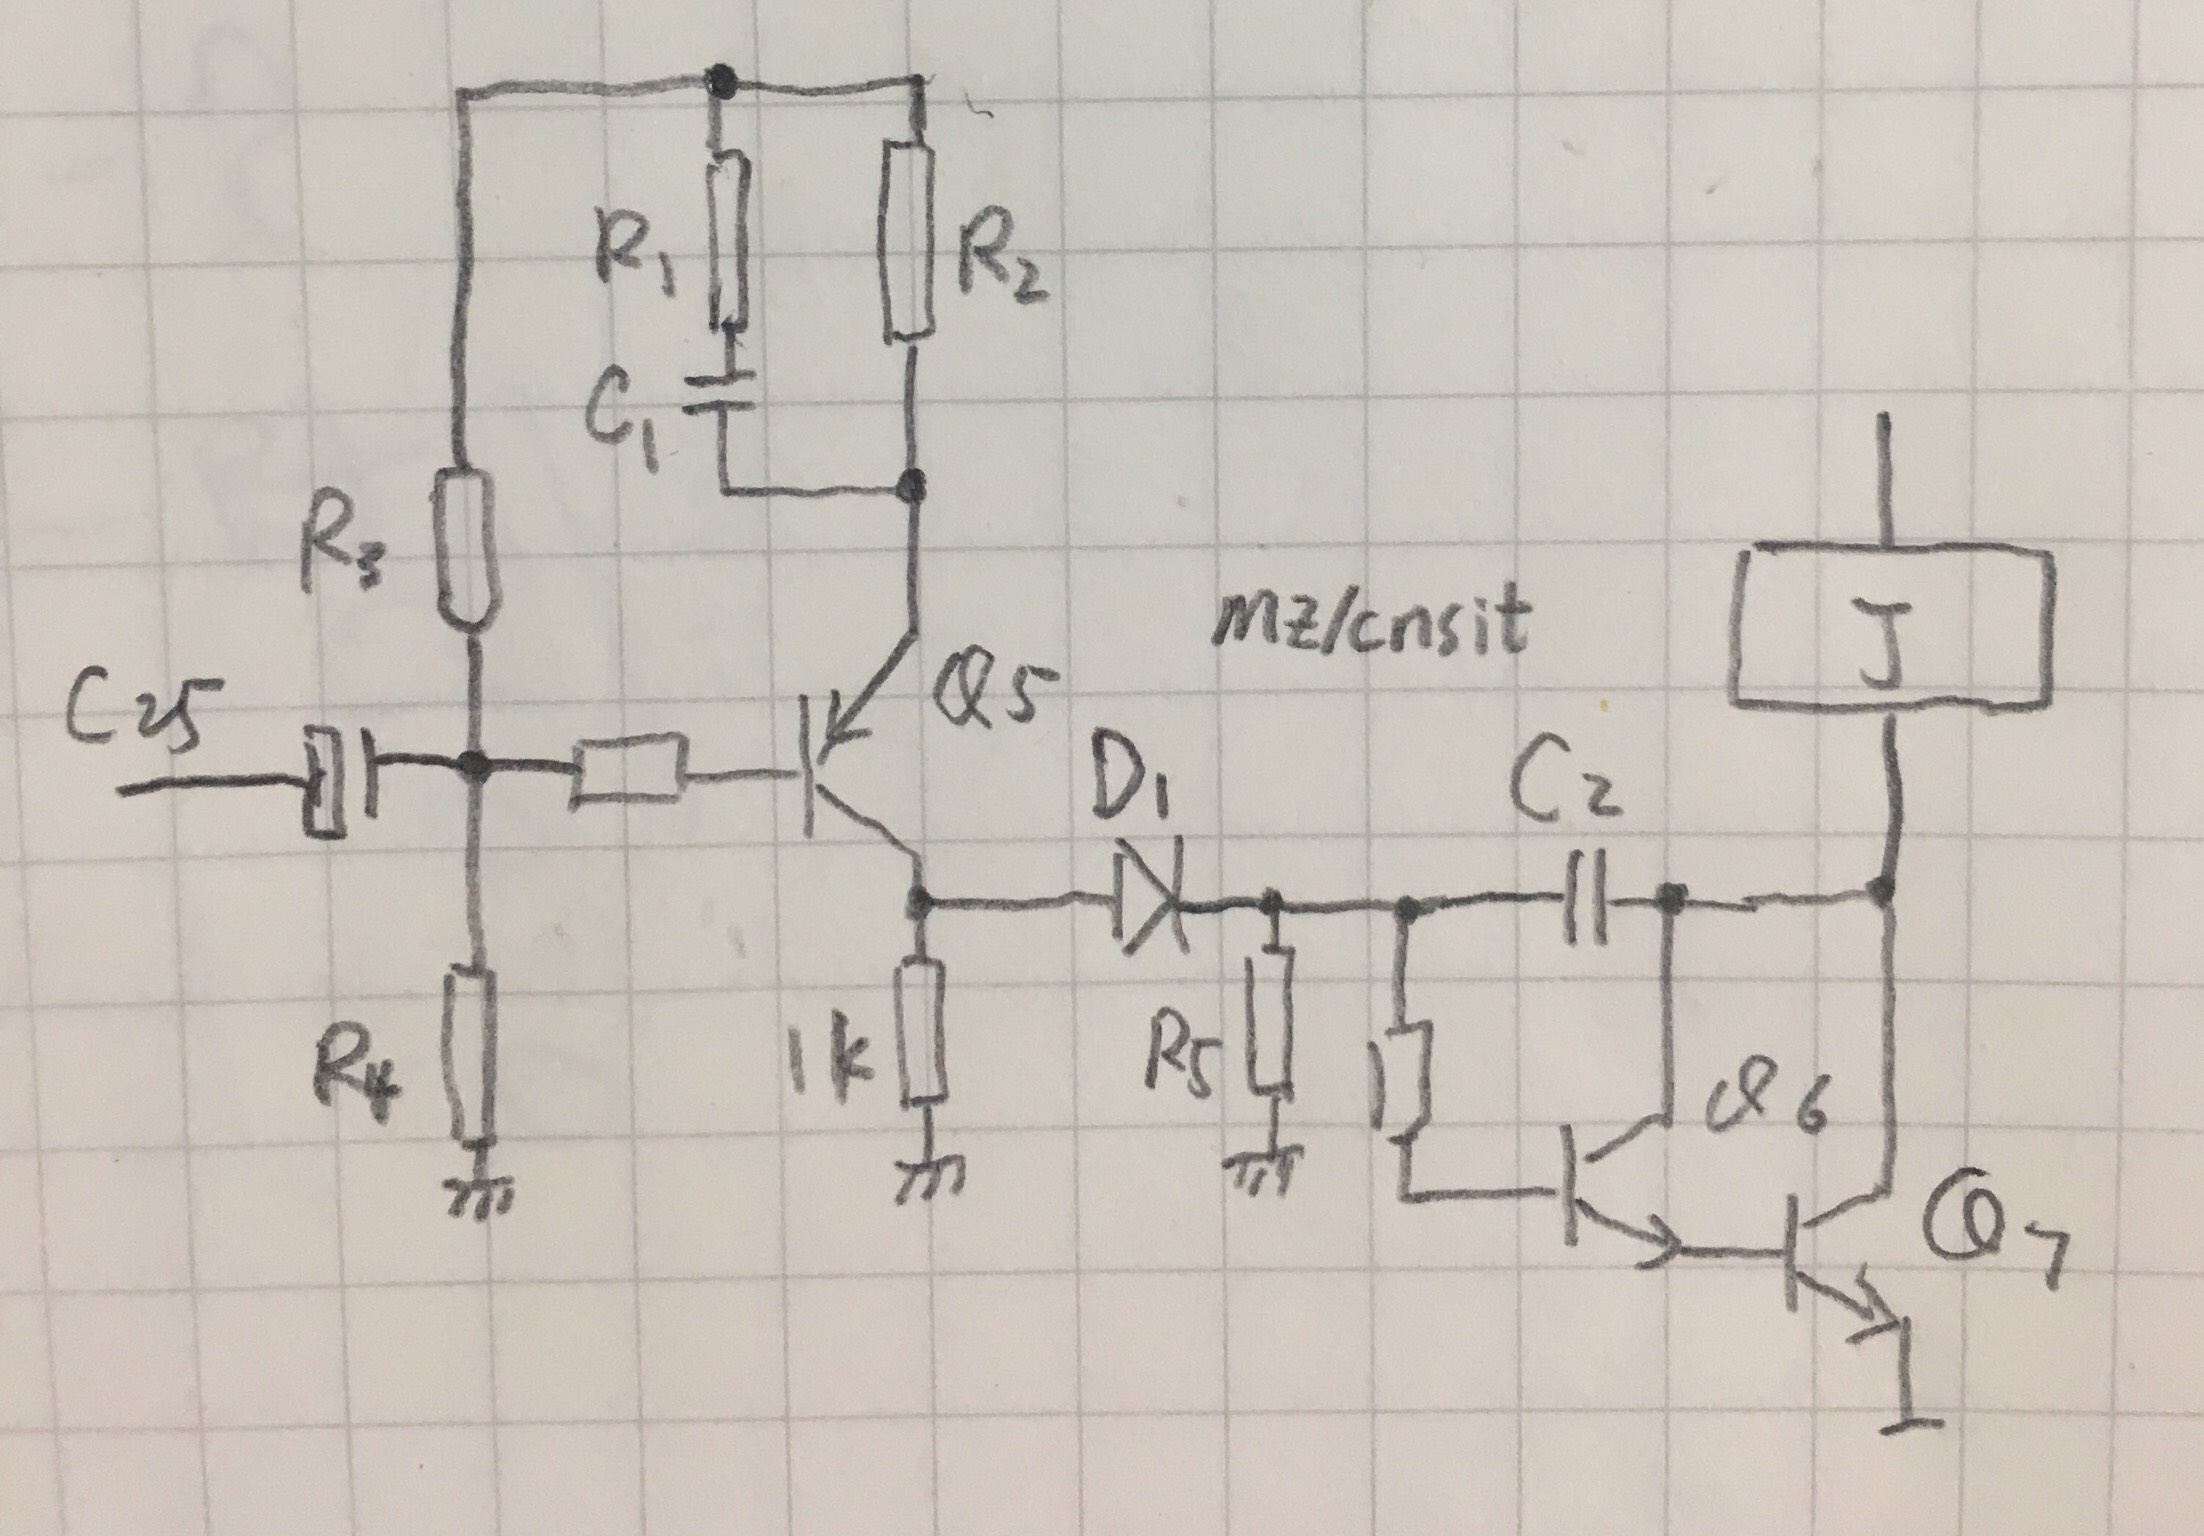 R1
R2
C1
R3
mz/cnsit
J
C25
Q5
D1
C2
R4
1k
R5
Q6
Q7